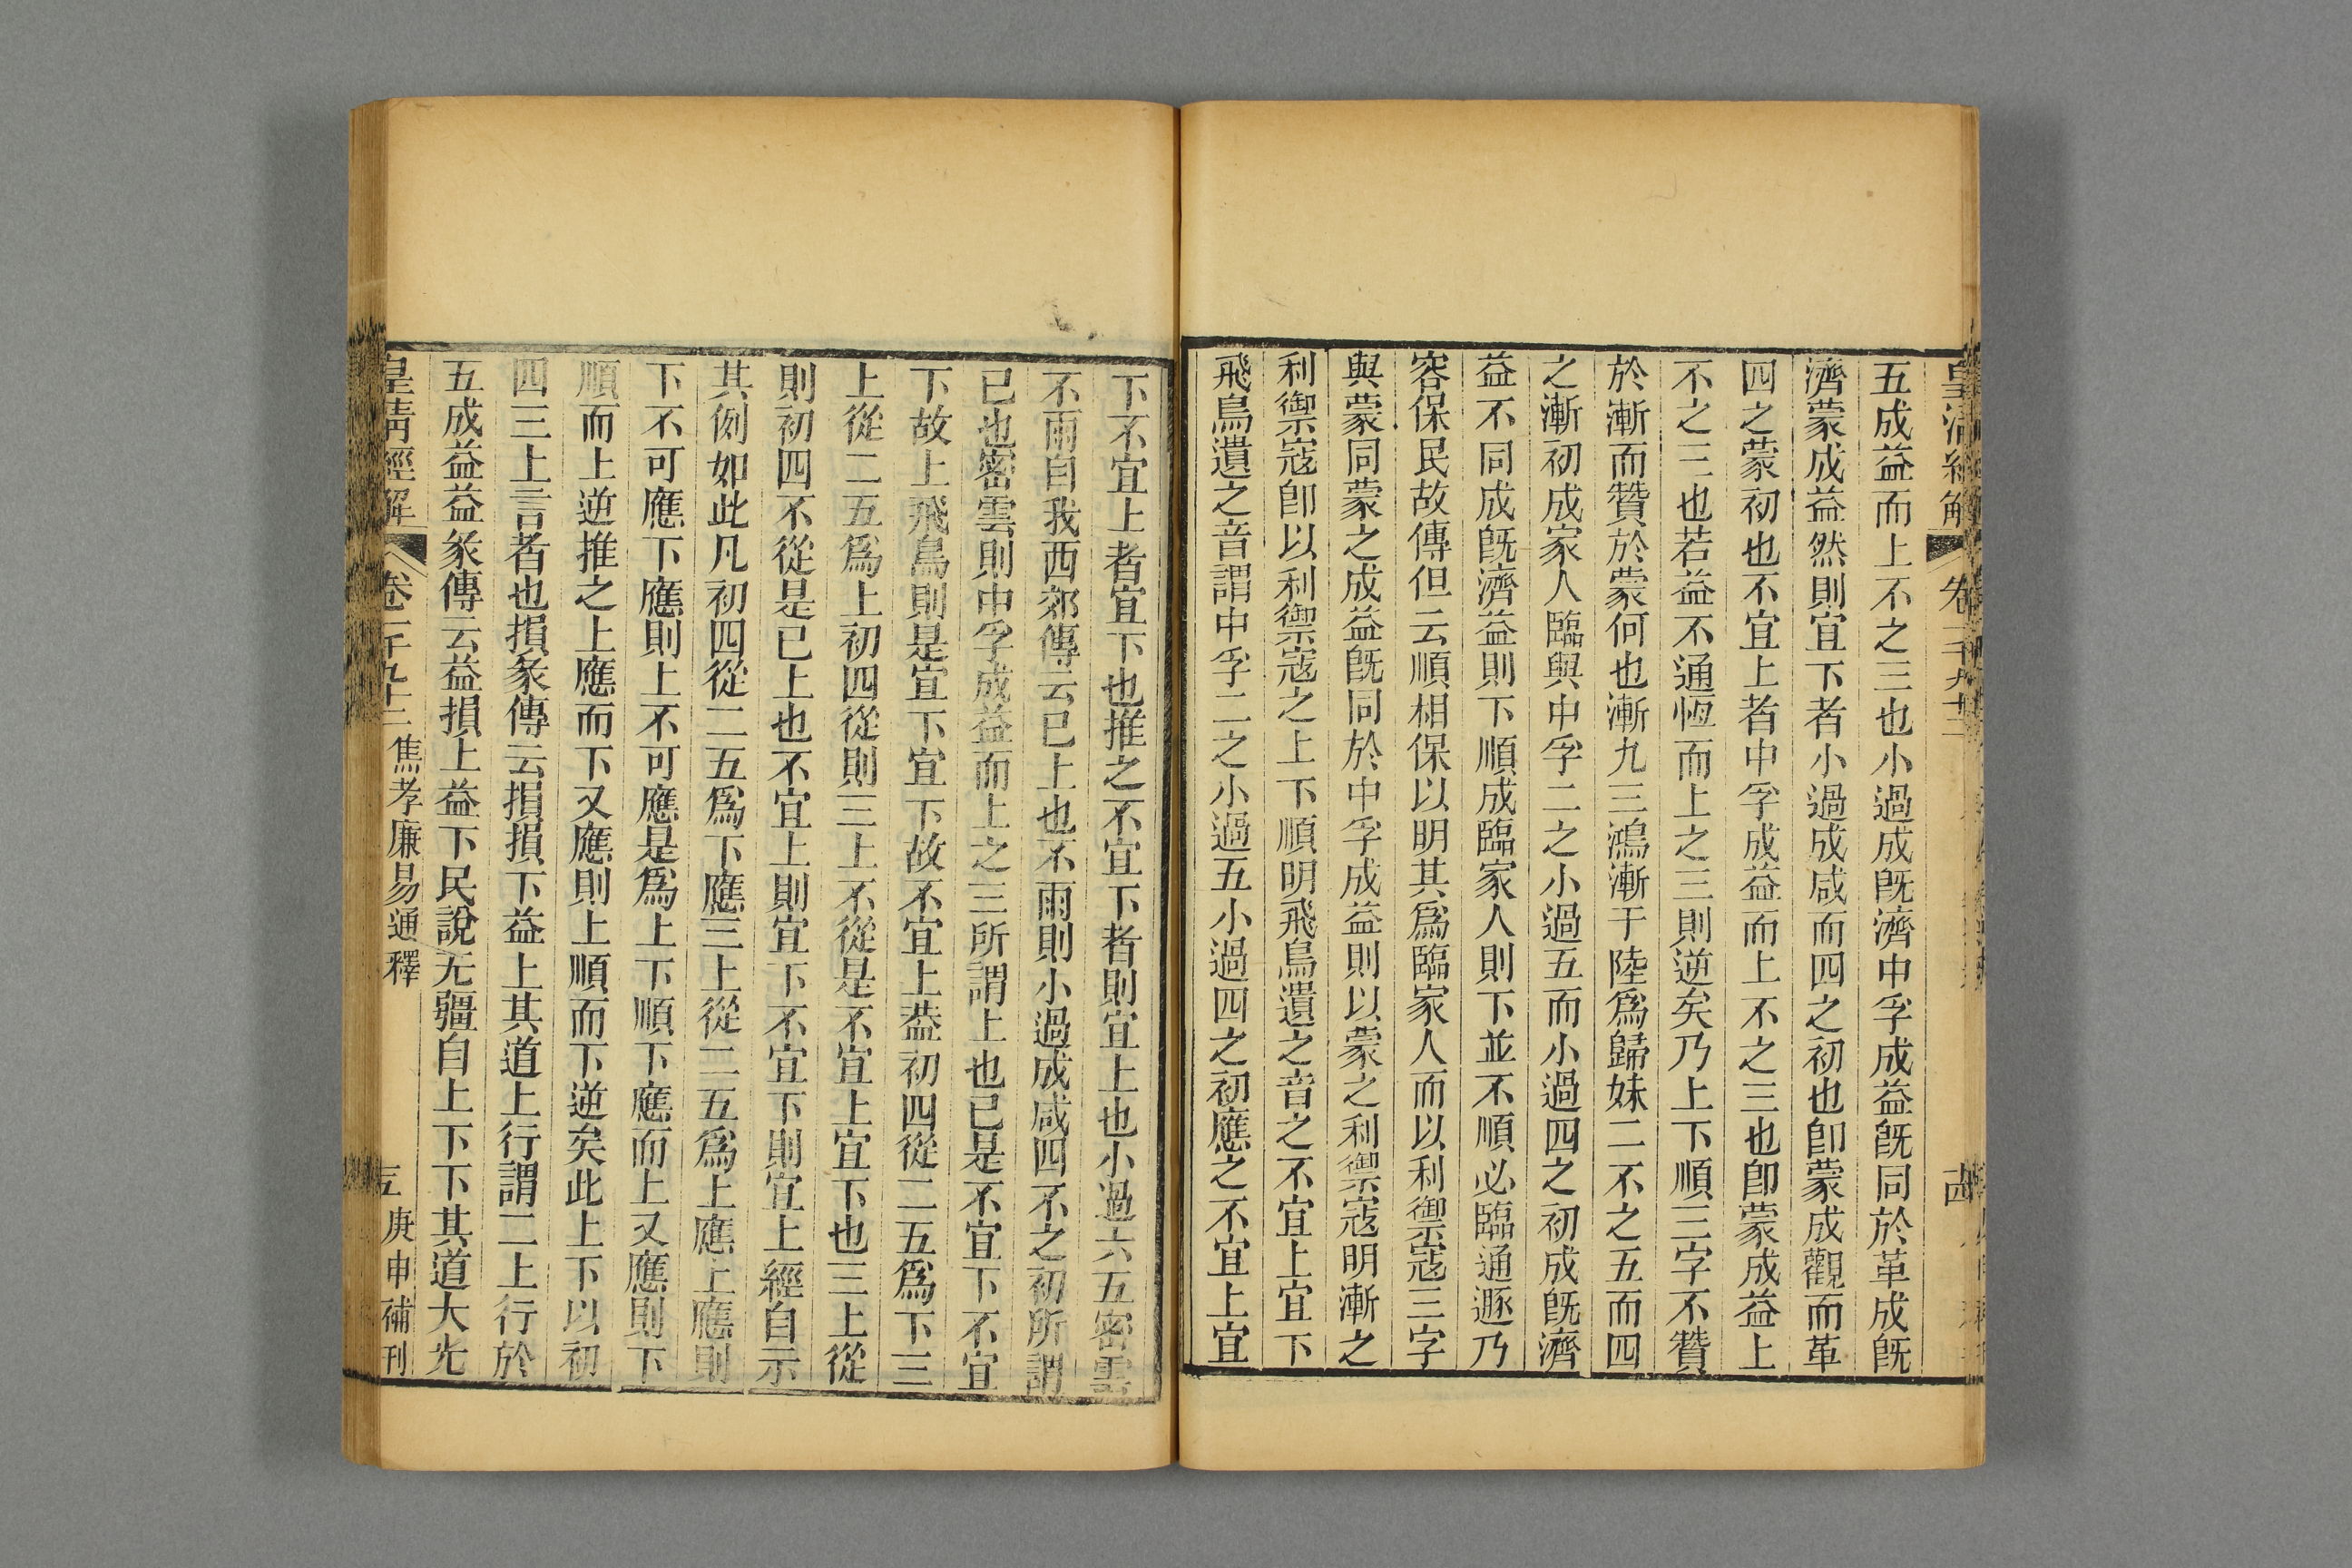 皇清經解 卷一千九十二 古
五成益而上不之三也小過成旣濟中孚成益旣同於革成旣
濟蒙成益然則宜下者小過成咸而四之初也卽蒙成觀而革
四之蒙初也不宜上者中孚成益而上不之三也卽蒙成益上
不之三也若益不通恆而上之三則逆矣乃上下順三字不贊
於漸而贊於蒙何也漸九三鴻漸于陸爲歸妹二不之五而四
之漸初成家人臨與中孚二之小過五而小過四之初成旣濟
益不同成旣濟益則下順成臨家人則下並不順必臨通遯乃
容保民故傳但云順相保以明其爲臨家人而以利禦寇三字
與蒙同蒙之成益旣同於中孚成益則以蒙之利禦寇明漸之
利禦寇卽以利禦寇之上下順明飛鳥遺之音之不宜上宜下
飛鳥遺之音謂中孚二之小過五小過四之初應之不宜上宜
下不宜上者宜下也推之不宜下者則宜上也小過六五密雲
不雨自我西郊傳云已上也不雨則小過成咸四不之初所謂
已也密雲則中孚成益而上之三所謂上也已是不宜下不宜
下故上飛鳥則是宜下宜下故不宜上葢初四從二五爲下三
上從二五爲上初四從則三上不從是不宜上宜下也三上從
則初四不從是已上也不宜上則宜下不宜下則宜上經自示
其例如此凡初四從二五爲下應三上從二五爲上應上應則
下不可應下應則上不可應是爲上下順下應而上又應則下
順而上逆推之上應而下又應則上順而下逆矣此上下以初
四三上言者也損彖傳云損損下益上其道上行謂二上行於
五成益益彖傳云益損上益下民說无疆自上下下其道大光
皇清經解 卷一千九十二 焦孝廉易通釋 五 庚申補刊